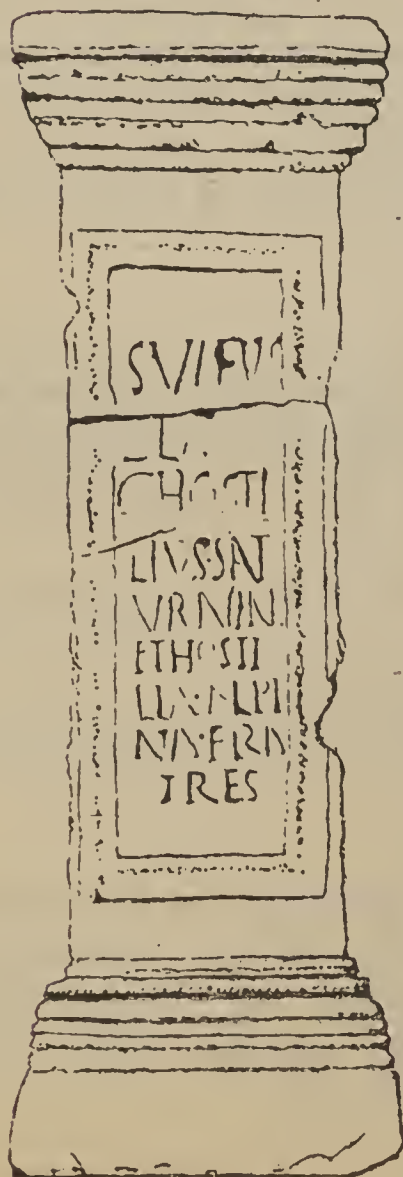 SVIFVC
L
CHOSTI
LIVS·SAT
VRNIN
ETHOSTI
LLA·ALPI
NA·FRA
TRES